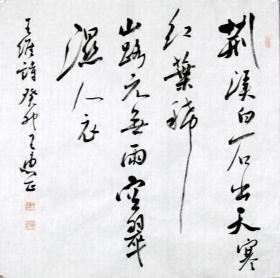 荆溪白石出天寒
红葉稀
山路元無雨空翠
濕人衣
王維詩癸卯